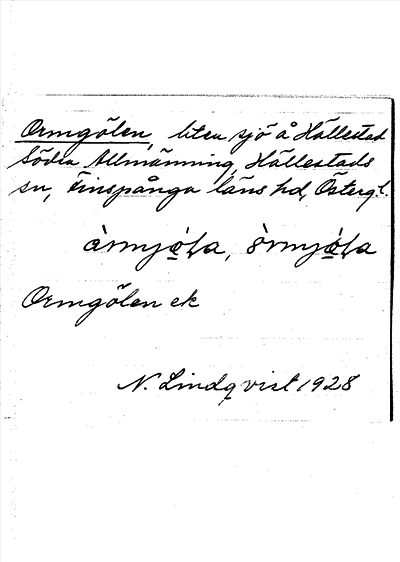 Ormgölen, liten sjö å Hällestad
Södra Allmänning, Hällestads
sn, Finspånga läns hd, Östergl.
Ormgölen ek
N. Lindqvist 1928